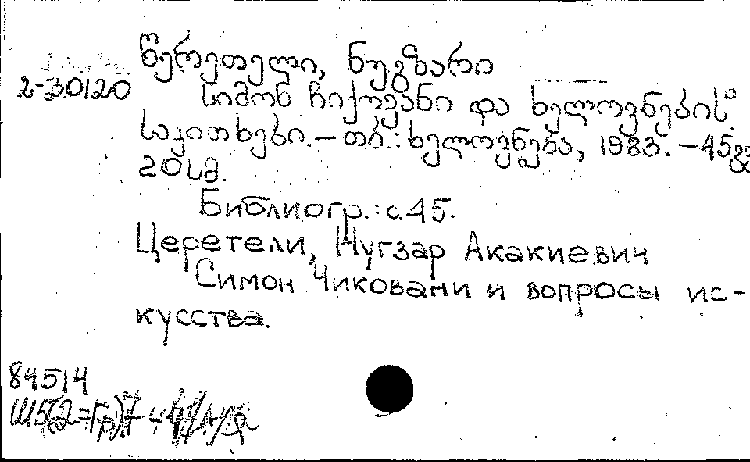 წერეთელი, ნუგზარი
2-30120
სიმონ ჩიქოვანი და ხელოვნების
საკითხები. – თბ.: ხელოვნება, 1983. – 45გვ
20სმ.
Библиогр.: с.45.
Церетели, Нугзар Акакиевич
Симон Чиковани и вопросы ис-
кусства.
84514